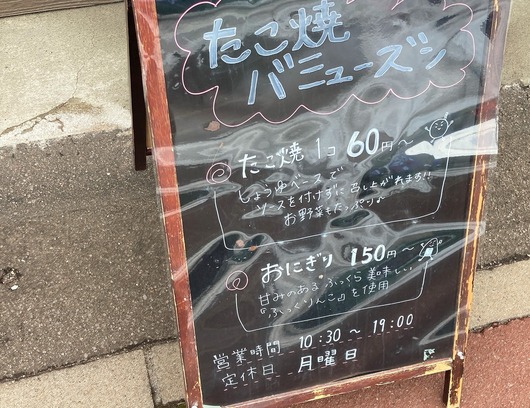 たこ焼
バミューズシ
たこ焼 1コ 60円～
しょうゆベースで
ソースを付けずに召し上がれます!!
お野菜もたっぷり♪
おにぎり 150円～
甘みのある ふっくら 美味しい
『ふっくりんこ』を使用
営業時間 10:30 ～ 19:00
定休日 月曜日